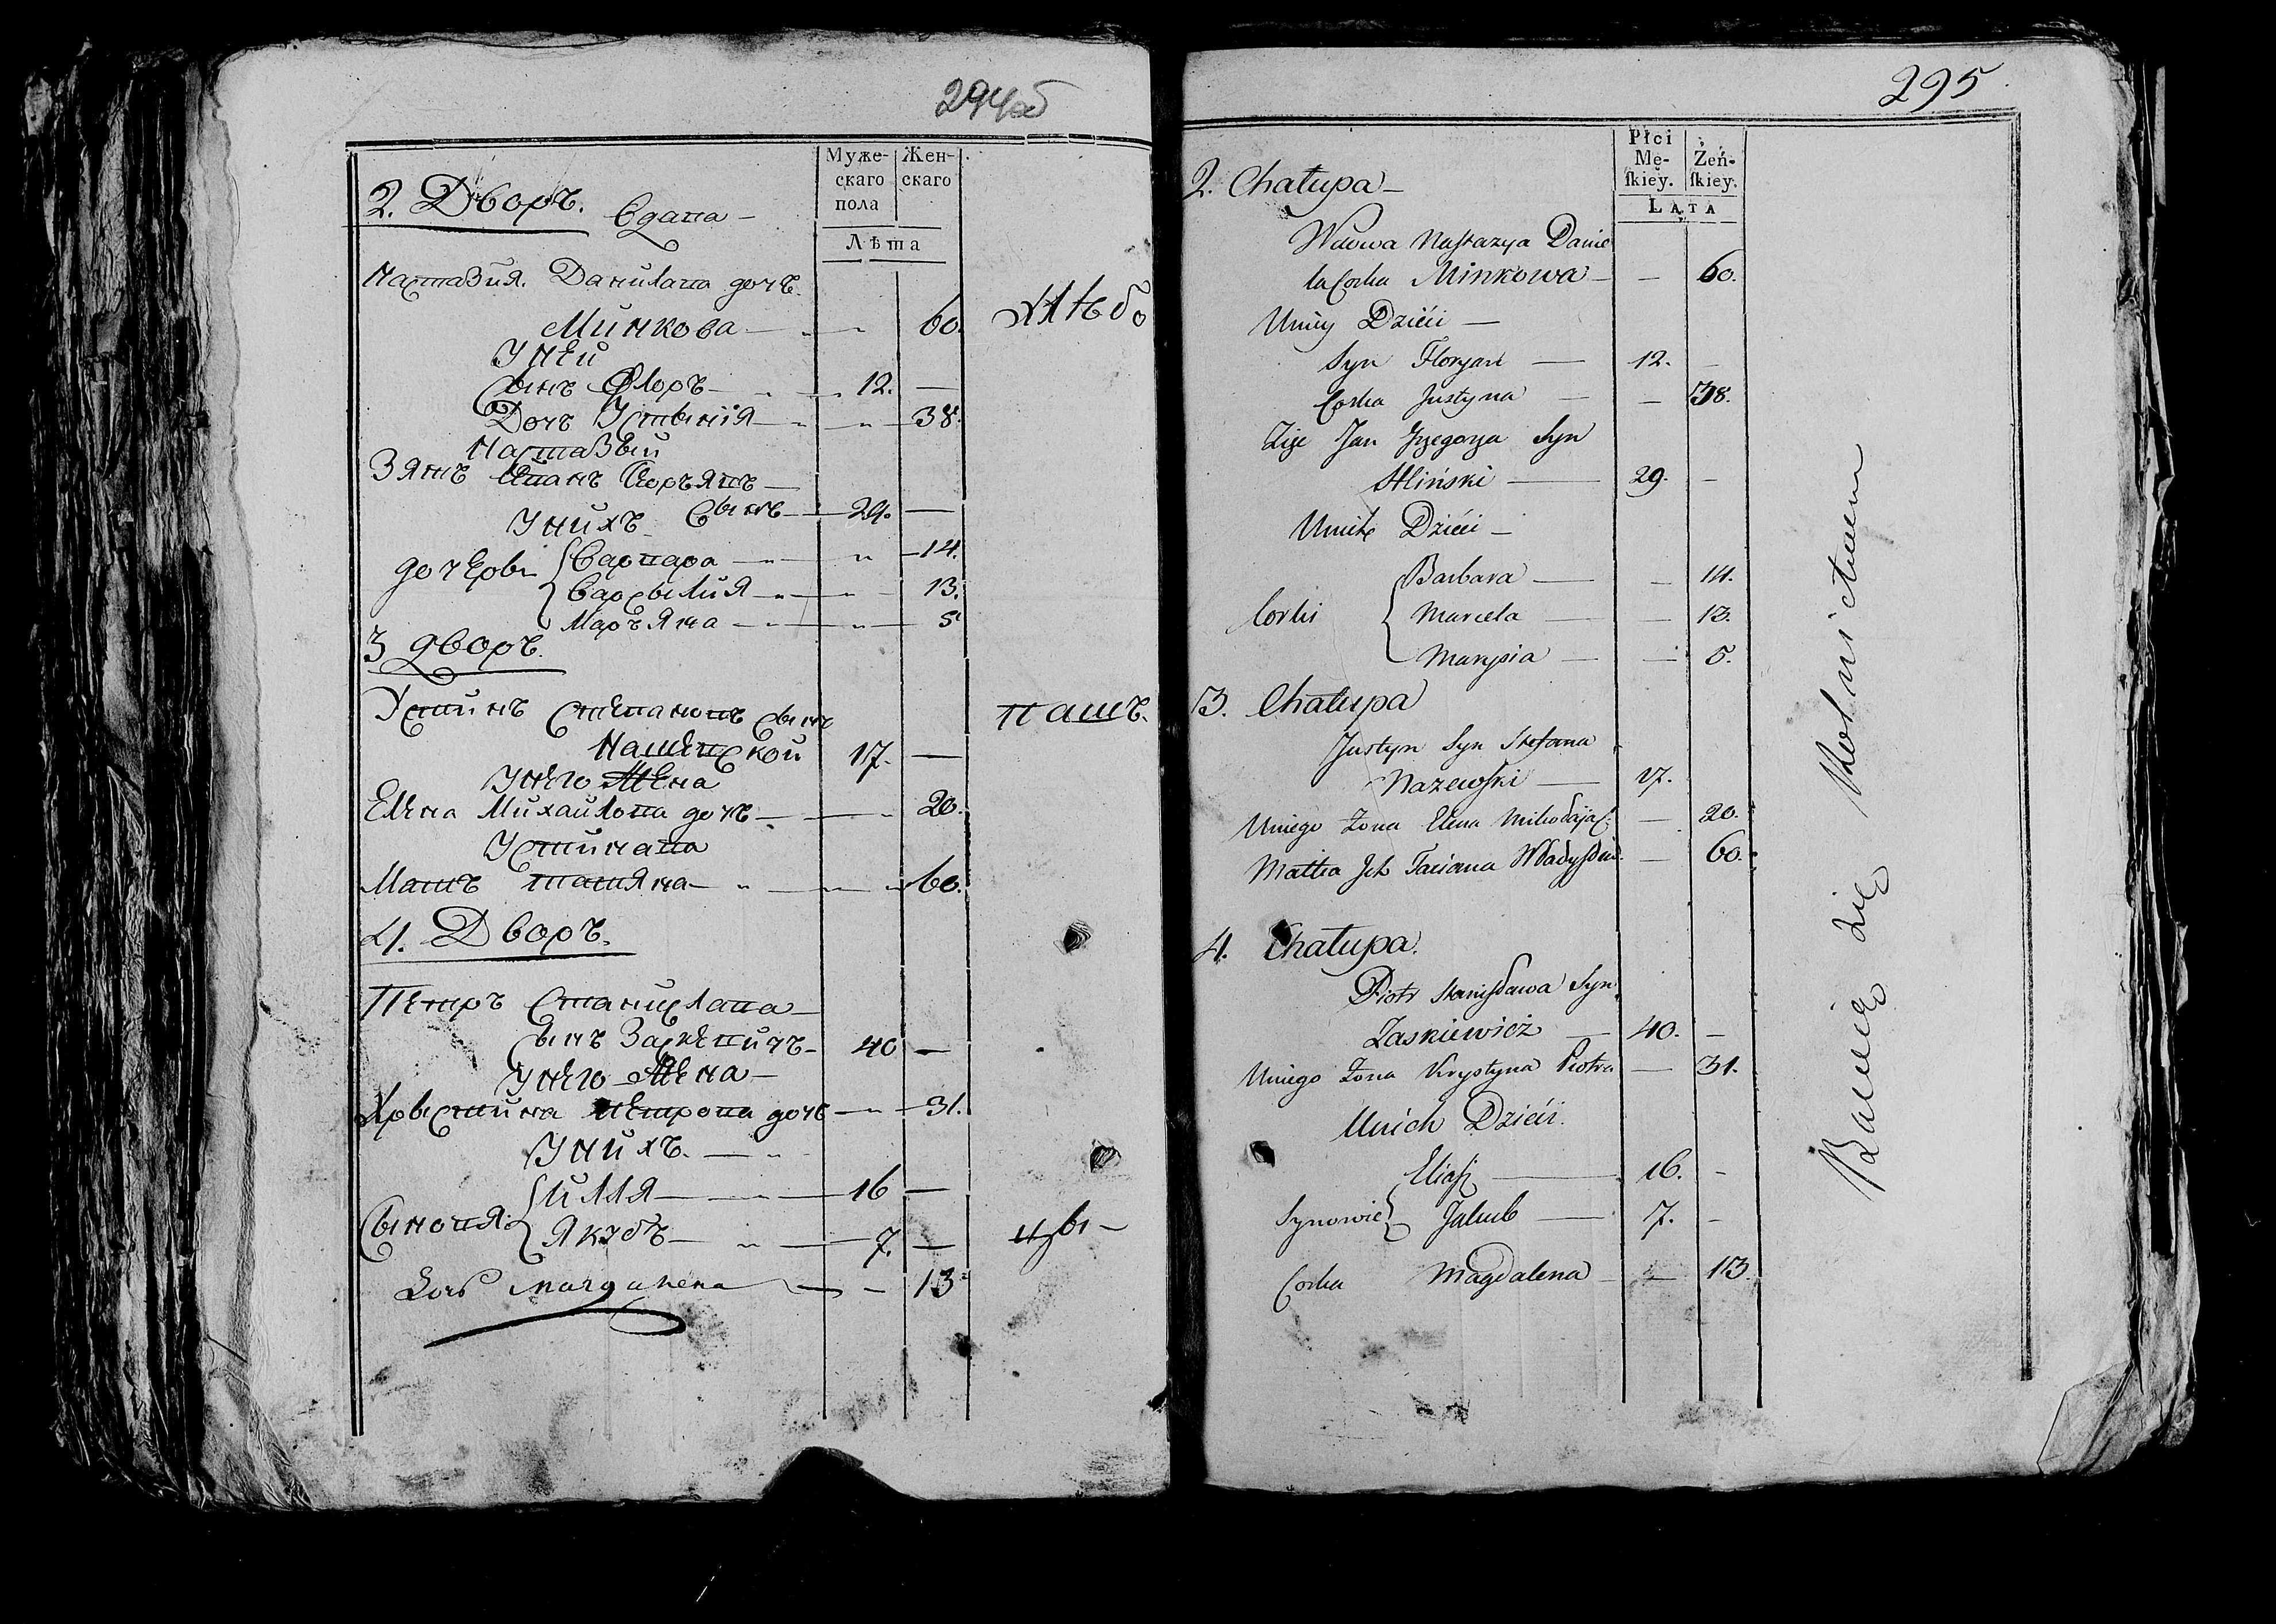 294об
Муже-
скаго
пола
Жен-
скаго
Лѣта
2. Дворъ. Вдова
Настазия Данилова дочь
Минкова 60.
У ней
Сынъ Флоръ 12.
Дочь Устыния 38.
Настазьи
Зять Иванъ
Сынъ 29.
У нихъ
дочеры Варвара 14.
Марьяна 5
3 дворъ.
Устинъ Степановъ сынъ
17.
У него жена
Елена Михайлова дочь 20.
Устинова
Мать Татяна 60.
4. Дворъ.
Петръ Станислава
сынъ Заскевичъ 40
У него жена
Хрыстина Петрова дочь 31.
У нихъ
Сыновя Илля 16
Якубъ 7.
Дочь Магдалена 13
Хлѣбо
паш
цы
295
Płci
Mę-
ſkiey.
Żeń-
ſkiey.
LATA
2. Chałupa
Wdowa Nastazya Danie
la Corka Minkowa 60.
U niey Dzieci
Syn Floryan 12.
Corka Justyna 38.
Zięć Jan Grzegorza Syn
29.
U nich Dzieci
Corki Barbara 14.
Marcela 13.
Marysia 5.
3. Chałupa
Justyn Syn Stefana
Nazewski 17.
U niego Żona Elena Mikołaja C. 20.
Matka Ich Taciana 60.
4. Chałupa.
Piotr Stanisława Syn
Zaskiewicz 40.
U niego Żona Krystyna Piotra 31.
U nich Dzieci.
Eliasz 16.
Synowie Jakub 7.
Corka Magdalena 13
Bawią się Rolnictwem